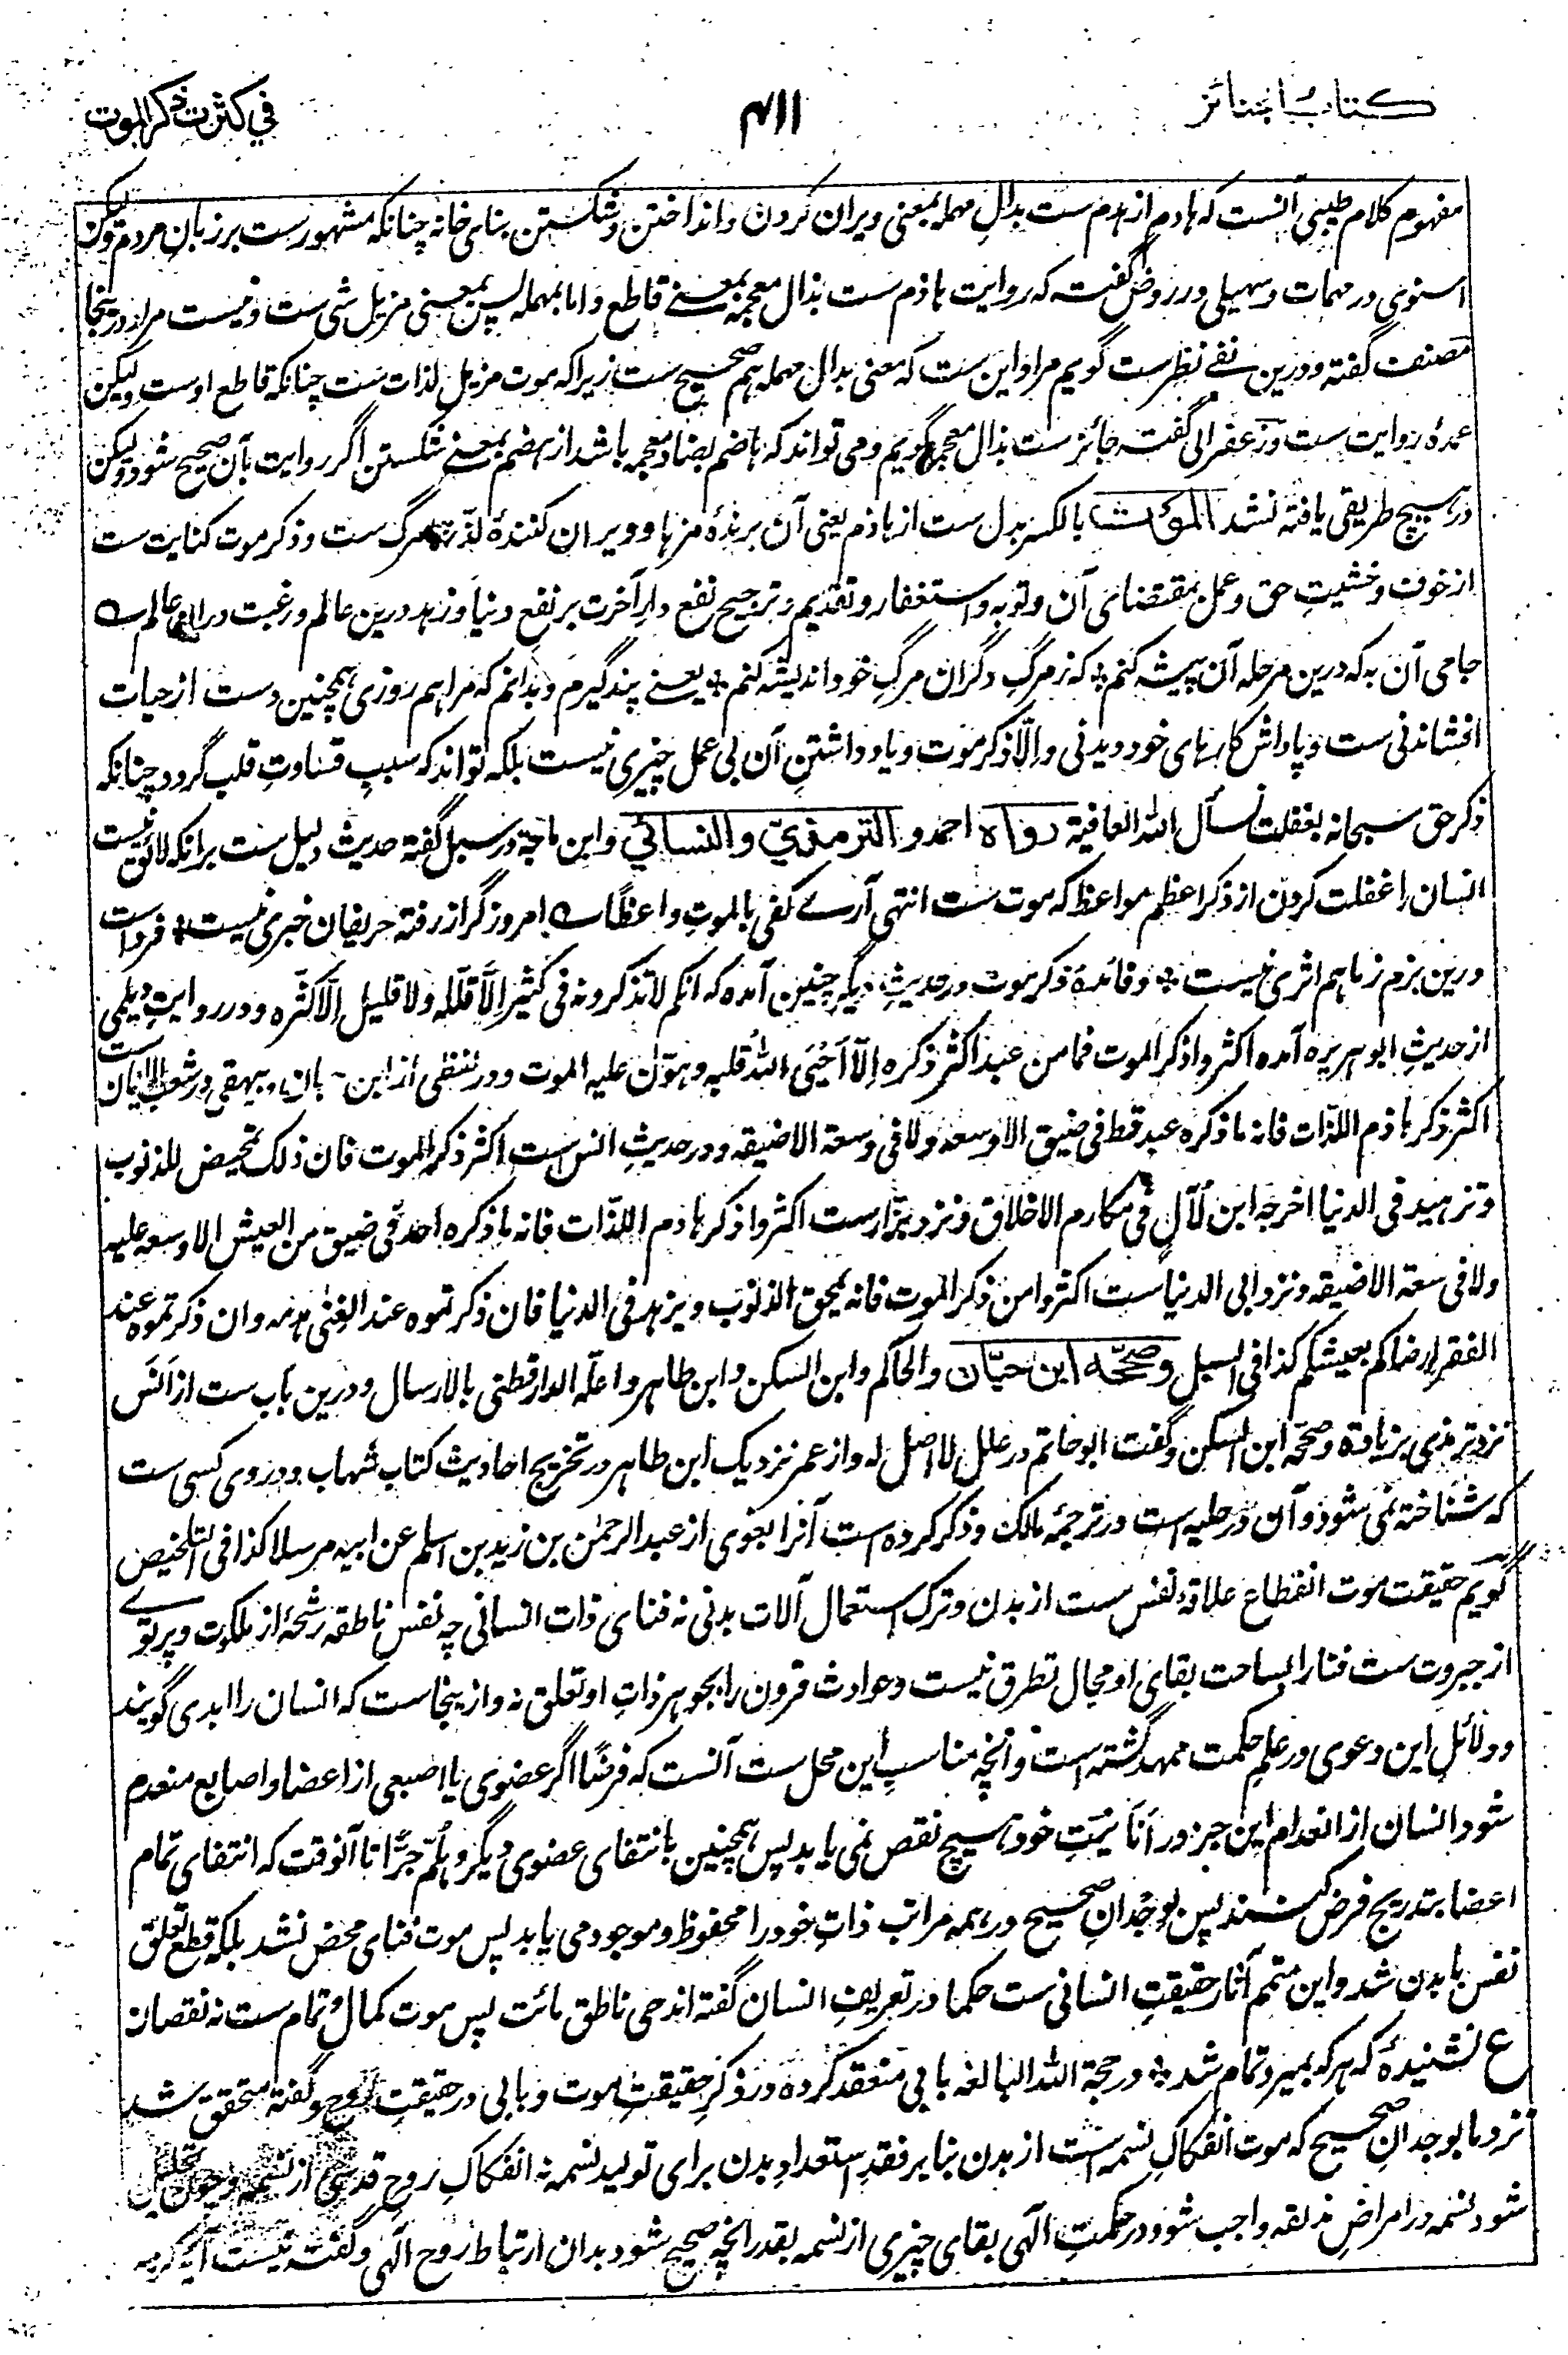 کتاب الجنائز
۴۱۱
فی کثرت ذکر الموت
مفهوم کلام طیبی آنست که هادم از هدم ست بدالِ مهمله بمعنی ویران کردن و انداختن و شکستن بنای خانه چنانکه مشهورست بر زبانِ مردم و لیکن
اسنوی در مهمات و سهیلی در روض گفته که روایت هاذم ست بذال معجمه بمعنے قاطع و اما بمهمله پس بمعنی مزیل شی ست و نیست مراد درینجا
مصنف گفته و درین نفے نظرست گویم مراد این ست که معنی بدال مهمله هم صحیح ست زیرا که موت مزیل لذات ست چنانکه قاطع اوست و لیکن
عمده روایت ست و زعفرانی گفته جائزست بذال معجمه گویم و می تواند که هاضم بضاد معجمه باشد از هضم بمعنے شکستن اگر روایت بآن صحیح شود و لیکن
در هیچ طریقی یافته نشد الموت بالکسر بدل ست از هاذم یعنی آن برندهٔ مزها و ویران کنندهٔ لذتها مرگ ست و ذکر موت کنایت ست
از خوف و خشیتِ حق و عمل بمقتضای آن و توبه و استغفار و تقدیم و ترجیح نفع دارِ آخرت بر نفع دنیا و زهد درین عالم و رغبت دران عالم ؎
جامی آن به که درین مرحله آن پیشه کنم ؛ که ز مرگِ دگران مرگِ خود اندیشه کنم ؛ یعنے پند گیرم و بدانم که مرا هم روزی همچنین دست از حیات
افشاندنی ست و پاداش کارهای خود دیدنی و اِلّا ذکر موت و یاد داشتنِ آن بی عمل چیزی نیست بلکه تواند که سببِ قساوتِ قلب گردد چنانکه
ذکر حق سبحانه بغفلت نسأل الله العافیة رواه احمد و الترمذیّ و النسائیّ و ابن ماجة در سبل گفته حدیث دلیل ست برانکه لائق نیست
انسان را غفلت کردن از ذکر اعظم مواعظ که موت ست انتهی آرے کفی بالموتِ واعظًا ؎ امروز گر از رفته حریفان خبری نیست ؛ فرداست
درین بزم ز ما هم اثری نیست ؛ و فائدهٔ ذکر موت در حدیثِ دیگر چنین آمده که انکم لا تذکرونه فی کثیر اِلَّا قلله و لا قلیل اِلَّا کثّره و در روایتِ دیلمی
از حدیثِ ابو هریره آمده اکثروا ذکر الموت فما من عبد اکثر ذکره اِلّا اَحْیَی اللهُ قلبه و هوّن علیه الموت و در لفظی از ابن حبان و بیهقی در شعب الایمان ست
اکثر ذکر هاذم اللذّات فانه ما ذکره عبد قط فی ضیق الا وسعه و لا فی وسعة الا ضیقه و در حدیثِ انس ست اکثر ذکر الموت فان ذلک تمحیص للذنوب
و تزهید فی الدنیا اخرجه ابن لَآلٍ فی مکارم الاخلاق و نزد بزّار ست اکثروا ذکر هادم اللذّات فانه ما ذکره احد فی ضیق من العیش الا وسعه علیه
و لا فی سعة الا ضیقه و نزد ابی الدنیا ست اکثروا من ذکر الموت فانه یمحق الذنوب و یزهد فی الدنیا فان ذکرتموه عند الغنٰی هدمه و ان ذکرتموه عند
الفقر ارضاکم بعیشکم کذا فی السبل و صحّحه ابن حبّان و الحاکم و ابن السکن و ابن طاهر و اعلّه الدارقطنی بالارسال و درین باب ست از انس
نزد ترمذی بزیادة و صححه ابن السکن و گفت ابو حاتم در علل لا اصل له و از عمر نزدیک ابن طاهر در تخریج احادیث کتاب شهاب و دروی کسی ست
که شناخته نمی شود و آن در حلیه است در ترجمهٔ مالک و ذکر کرده است آنرا بغوی از عبد الرحمٰن بن زید بن اسلم عن ابیه مرسلا کذا فی التلخیص
گویم حقیقت موت انقطاع علاقهٔ نفس ست از بدن و ترک استعمال آلات بدنی نه فنای ذات انسانی چه نفس ناطقه رشحهٔ از ملکوت و پرتوے
از جبروت ست فنا را بساحت بقای او مجال تطرق نیست و حوادث قرون را بجوهر ذاتِ او تعلق نه و ازینجاست که انسان را ابدی گویند
و دلائل این دعوی در علم حکمت ممهد گشته است و آنچه مناسبِ این محل ست آنست که فرضًا اگر عضوی یا اصبعی از اعضا و اصابع منعدم
شود انسان از انعدام این جزء در اَنَانیتِ خود هیچ نقص نمی یابد پس همچنین بانتفای عضوی دیگر و هَلُمّ جَرًّا تا آنوقت که انتفای تمام
اعضا بتدریج فرض کنند پس بوجْدانِ صحیح در همه مراتب ذاتِ خود را محفوظ و موجود می یابد پس موت فنای محض نشد بلکه قطع تعلق
نفس با بدن شد و این متمم آثار حقیقتِ انسانی ست حکما در تعریفِ انسان گفته اند حی ناطق مائت پس موت کمال و تمام ست نه نقصان
ع نشنیدهٔ که هر که بمیرد تمام شد ؛ در حجة الله البالغه بابی منعقد کرده در ذکرِ حقیقتِ موت و بابی در حقیقتِ روح و گفته متحقق شد
نزد ما بوجدانِ صحیح که موت انفکاکِ نسمه است از بدن بنا بر فقدِ استعدادِ بدن برای تولید نسمه نه انفکاکِ روحِ قدسی از نسمه و چون تحلیل
شود نسمه در امراضِ مدنفه واجب شود در حکمتِ الٓهی بقای چیزی از نسمه بقدر آنچه صحیح شود بدان ارتباط روح الٓهی و گفته نیست آیه کریمه